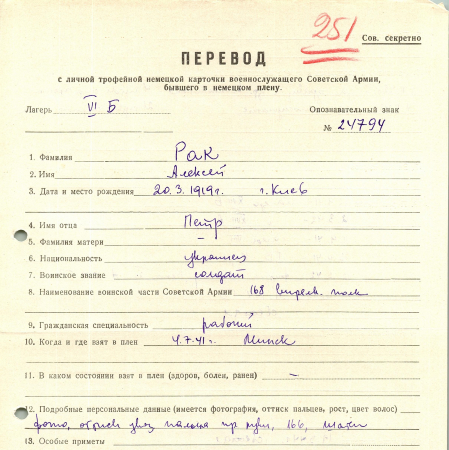 251
Сов. секретно
ПЕРЕВОД
с личной трофейной немецкой карточки военнослужащего Советской Армии,
бывшего в немецком плену.
Лагерь VI Б
Опознавательный знак
№ 24794
1. Фамилия Рак
2. Имя Алексей
3. Дата и место рождения 20.3.1919г. г. Киев
4. Имя отца Петр
5. Фамилия матери –
6. Национальность украинец
7. Воинское звание солдат
8. Наименование воинской части Советской Армии 168 стрелк. полк
9. Гражданская специальность рабочий
10. Когда и где взят в плен 4.7.41г. Минск
11. В каком состоянии взят в плен (здоров, болен, ранен) –
12. Подробные персональные данные (имеется фотография, оттиск пальцев, рост, цвет волос)
фото, оттиск указ. пальца пр. руки, 166,
13. Особые приметы